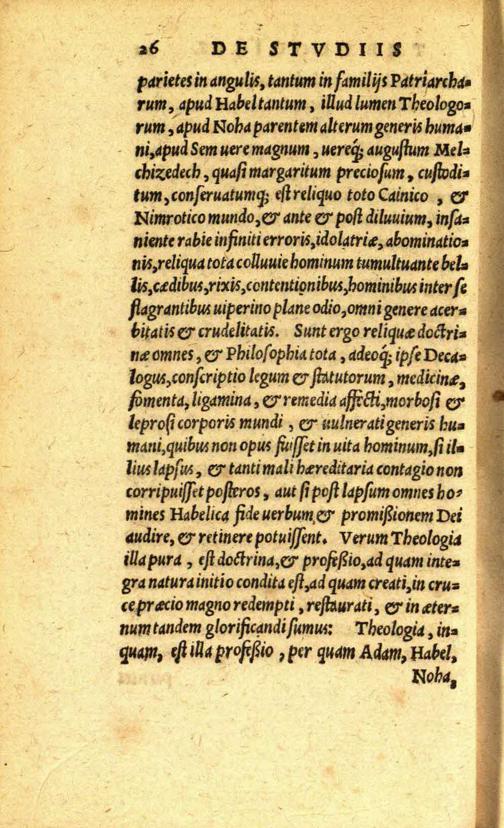 26 DE STVDIIS
parietes in angulis, tantum in familijs Patriarcha=
rum, apud Habel tantum, illud lumen Theologo=
rum, apud Noha parentem alterum generis huma=
ni, apud Sem uere magnum, uereq; augustum Mel=
chizedech, quasi margaritum preciosum, custodi=
tum, conseruatumq; est reliquo toto Cainico, &
Nimrotico mundo, & ante & post diluuium, insa=
niente rabie infiniti erroris, idolatriæ, abominatio=
nis, reliqua tota colluuie hominum tumultuante bel=
lis, cædibus, rixis, contentionibus, hominibus inter se
flagrantibus uiperino plane odio, omni genere acer=
bitatis & crudelitatis. Sunt ergo reliquæ doctri=
næ omnes, & Philosophia tota, adeoq; ipse Deca=
logus, conscriptio legum & statutorum, medicinæ,
fomenta, ligamina, & remedia affecti, morbosi &
leprosi corporis mundi, & uulnerati generis hu=
mani, quibus non opus fuisset in uita hominum, si il=
lius lapsus, & tanti mali hæreditaria contagio non
corripuisset posteros, aut si post lapsum omnes ho=
mines Habelica fide uerbum & promißionem Dei
audire, & retinere potuissent. Verum Theologia
illa pura, est doctrina, & profeßio, ad quam inte=
gra natura initio condita est, ad quam creati, in cru=
ce præcio magno redempti, restaurati, & in æter=
num tandem glorificandi sumus: Theologia, in=
quam, est illa profeßio, per quam Adam, Habel,
Noha,